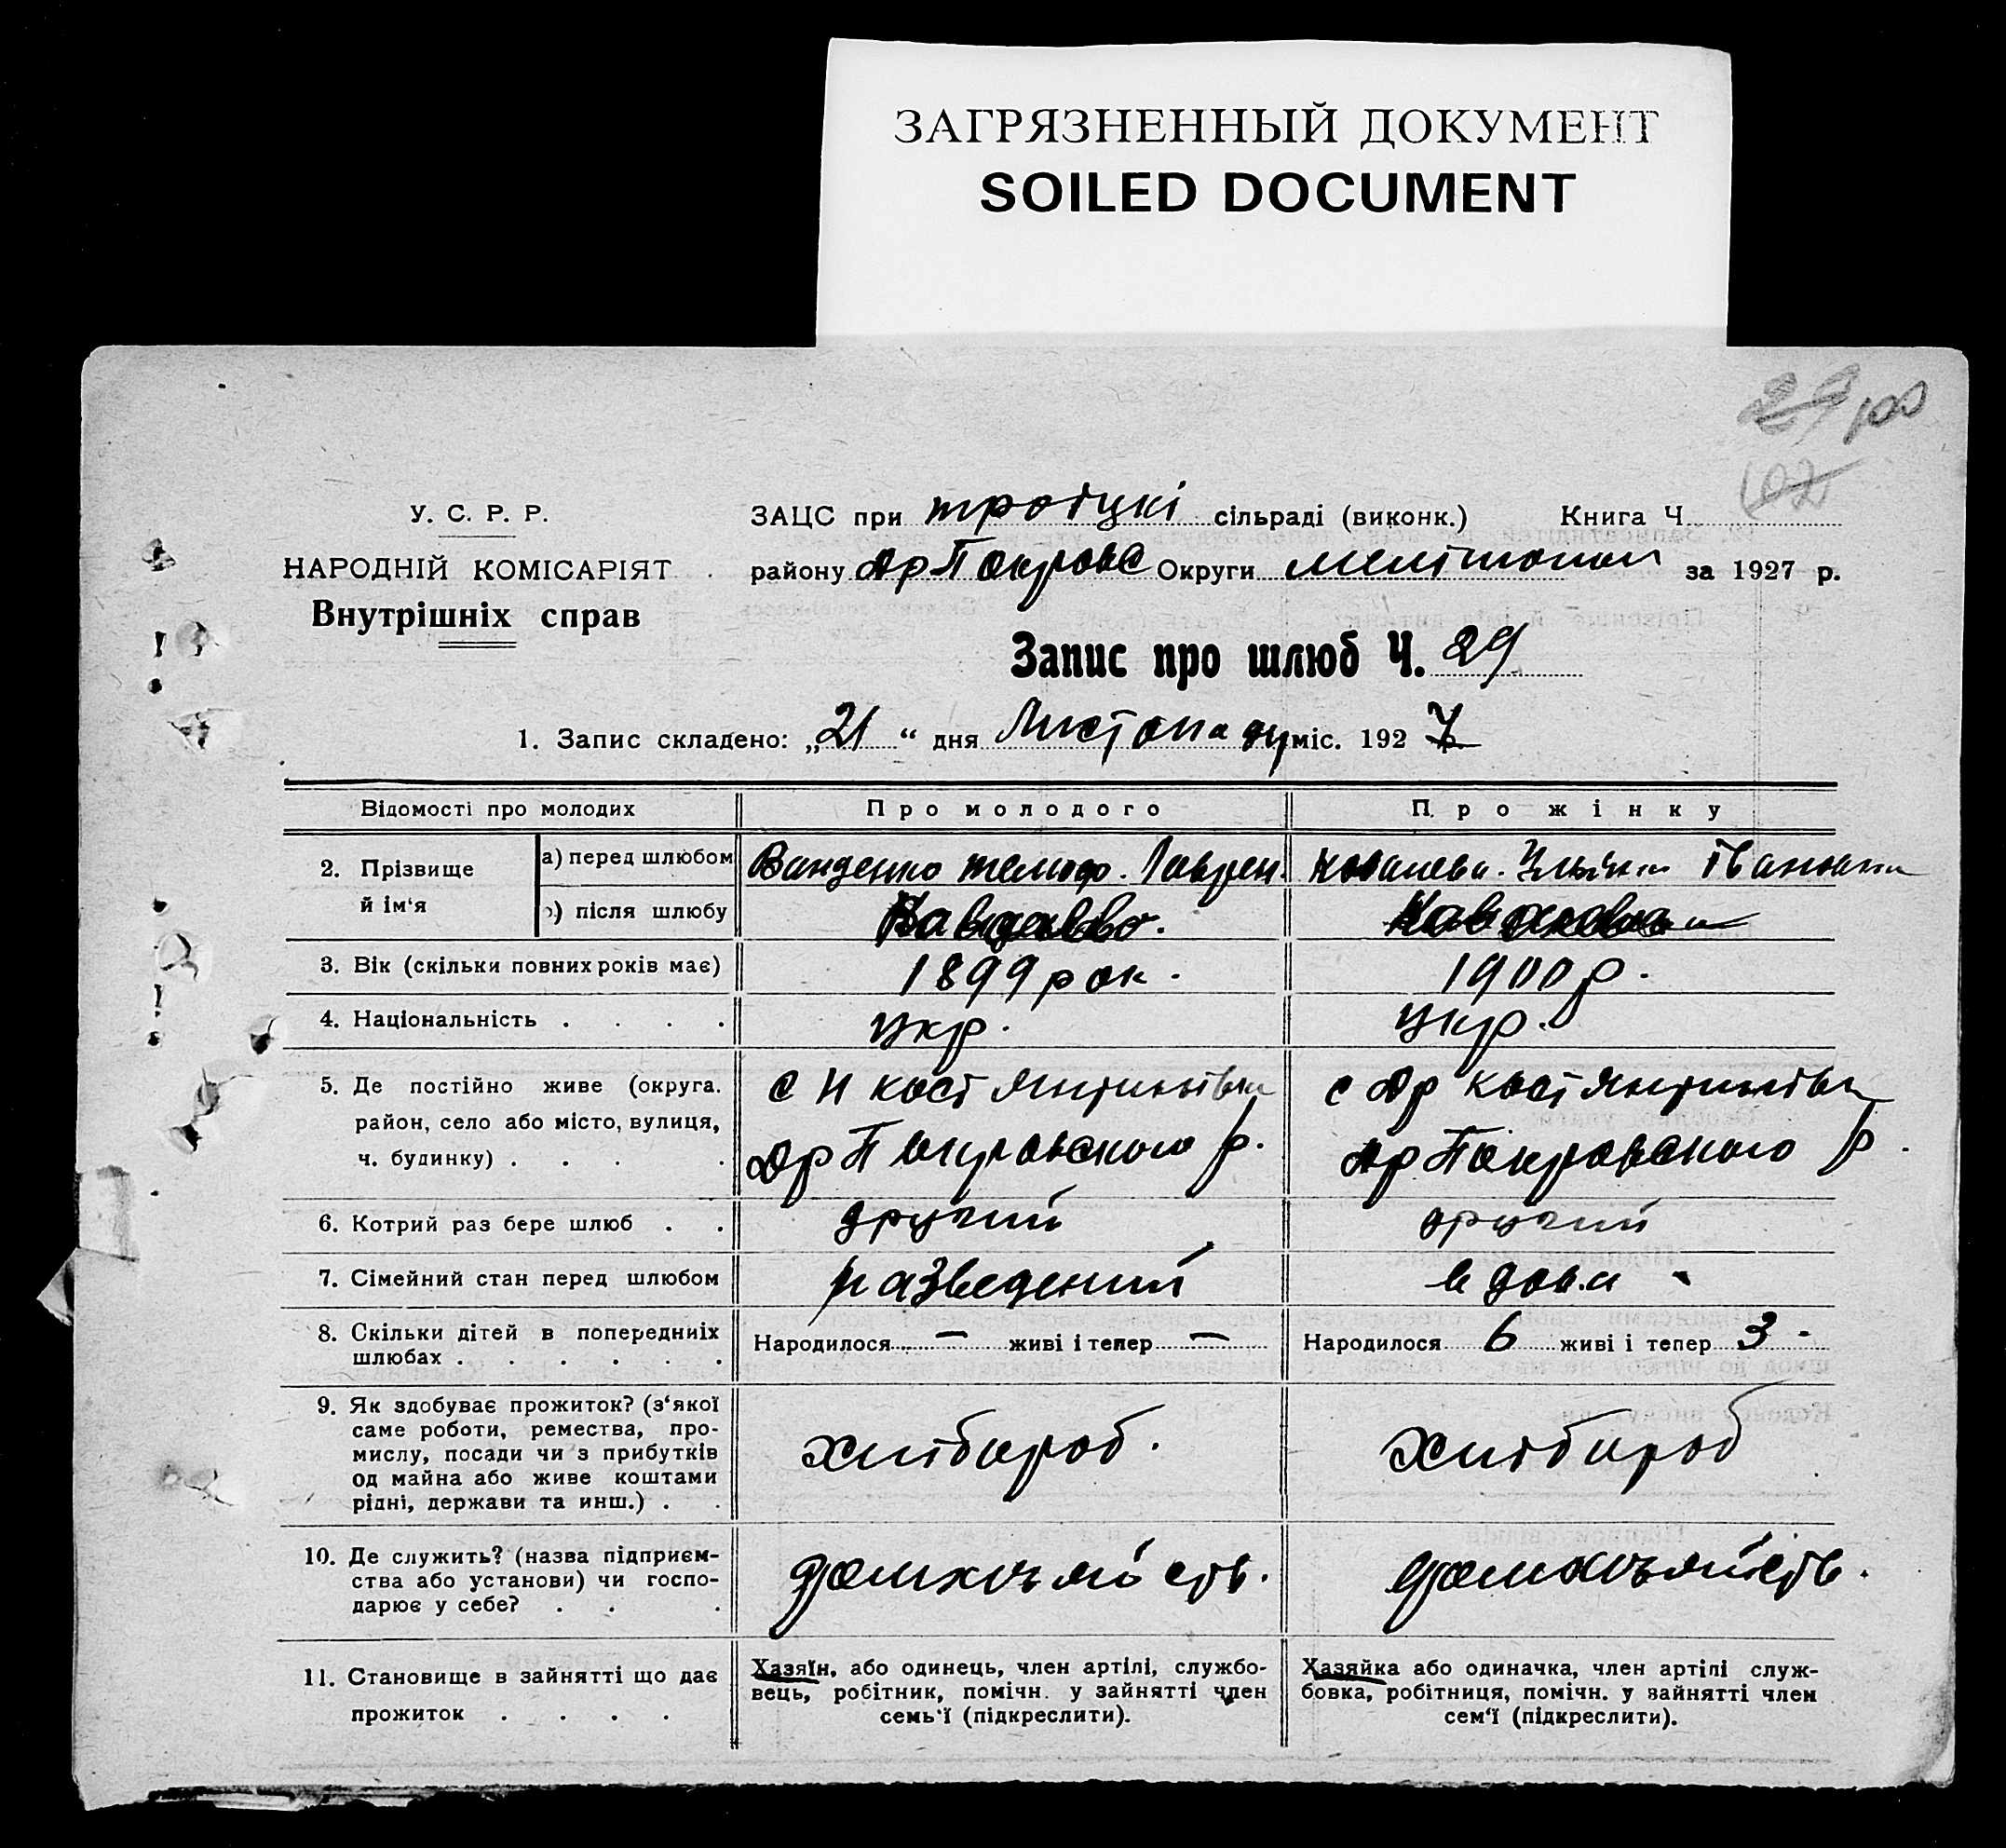 ЗАГРЯЗНЕННЫЙ ДОКУМЕНТ
SOILED DOCUMENT
29 100
102
У. С. Р. Р.
НАРОДНІЙ КОМІСАРІЯТ
Внутрішніх справ
ЗАЦС при троїцкі сільраді (виконк.) Книга Ч
району др Покровс Округи мелітопол за 1927 р.
Запис про шлюб Ч. 29
1. Запис складено: „21“ дня Листопаду міс. 1927
Відомості про молодих Про молодого Про жінку
2. Прізвище й ім‘я
а) перед шлюбом Лаврен. Ковалева. Ульяни
) після шлюбу
3. Вік (скільки повних років має) 1899 рок. 1900 р.
4. Національність . . . . укр. укр.
5. Де постійно живе (округа. с Н костянтинівка с др костянтинівка
район, село або місто, вулиця, др Покровского р. др Покровского р.
ч. будинку) . . . .
6. Котрий раз бере шлюб . . другий другий
7. Сімейний стан перед шлюбом разведений вдова
8. Скільки дітей в попередниіх Народилося — живі і тепер — Народилося 6 живі і тепер 3 -
шлюбах . . . . . .
9. Як здобуває прожиток? (з‘якої
саме роботи, ремества, про-
мислу, посади чи з прибутків хлібороб. хлібороб
од майна або живе коштами
рідні, держави та инш.) . .
10. Де служить? (назва підприєм-
ства або установи) чи госпо-
дарює у себе? . . .
11. Становище в зайнятті що дає
прожиток . . . .
Хазяїн, або одинець, член артілі, службо-
вець, робітник, помічн. у зайнятті член
семь‘ї (підкреслити).
Хазяйка або одиначка, член артілі служ-
бовка, робітниця, помічн. у зайнятті член
сем‘ї (підкреслити).